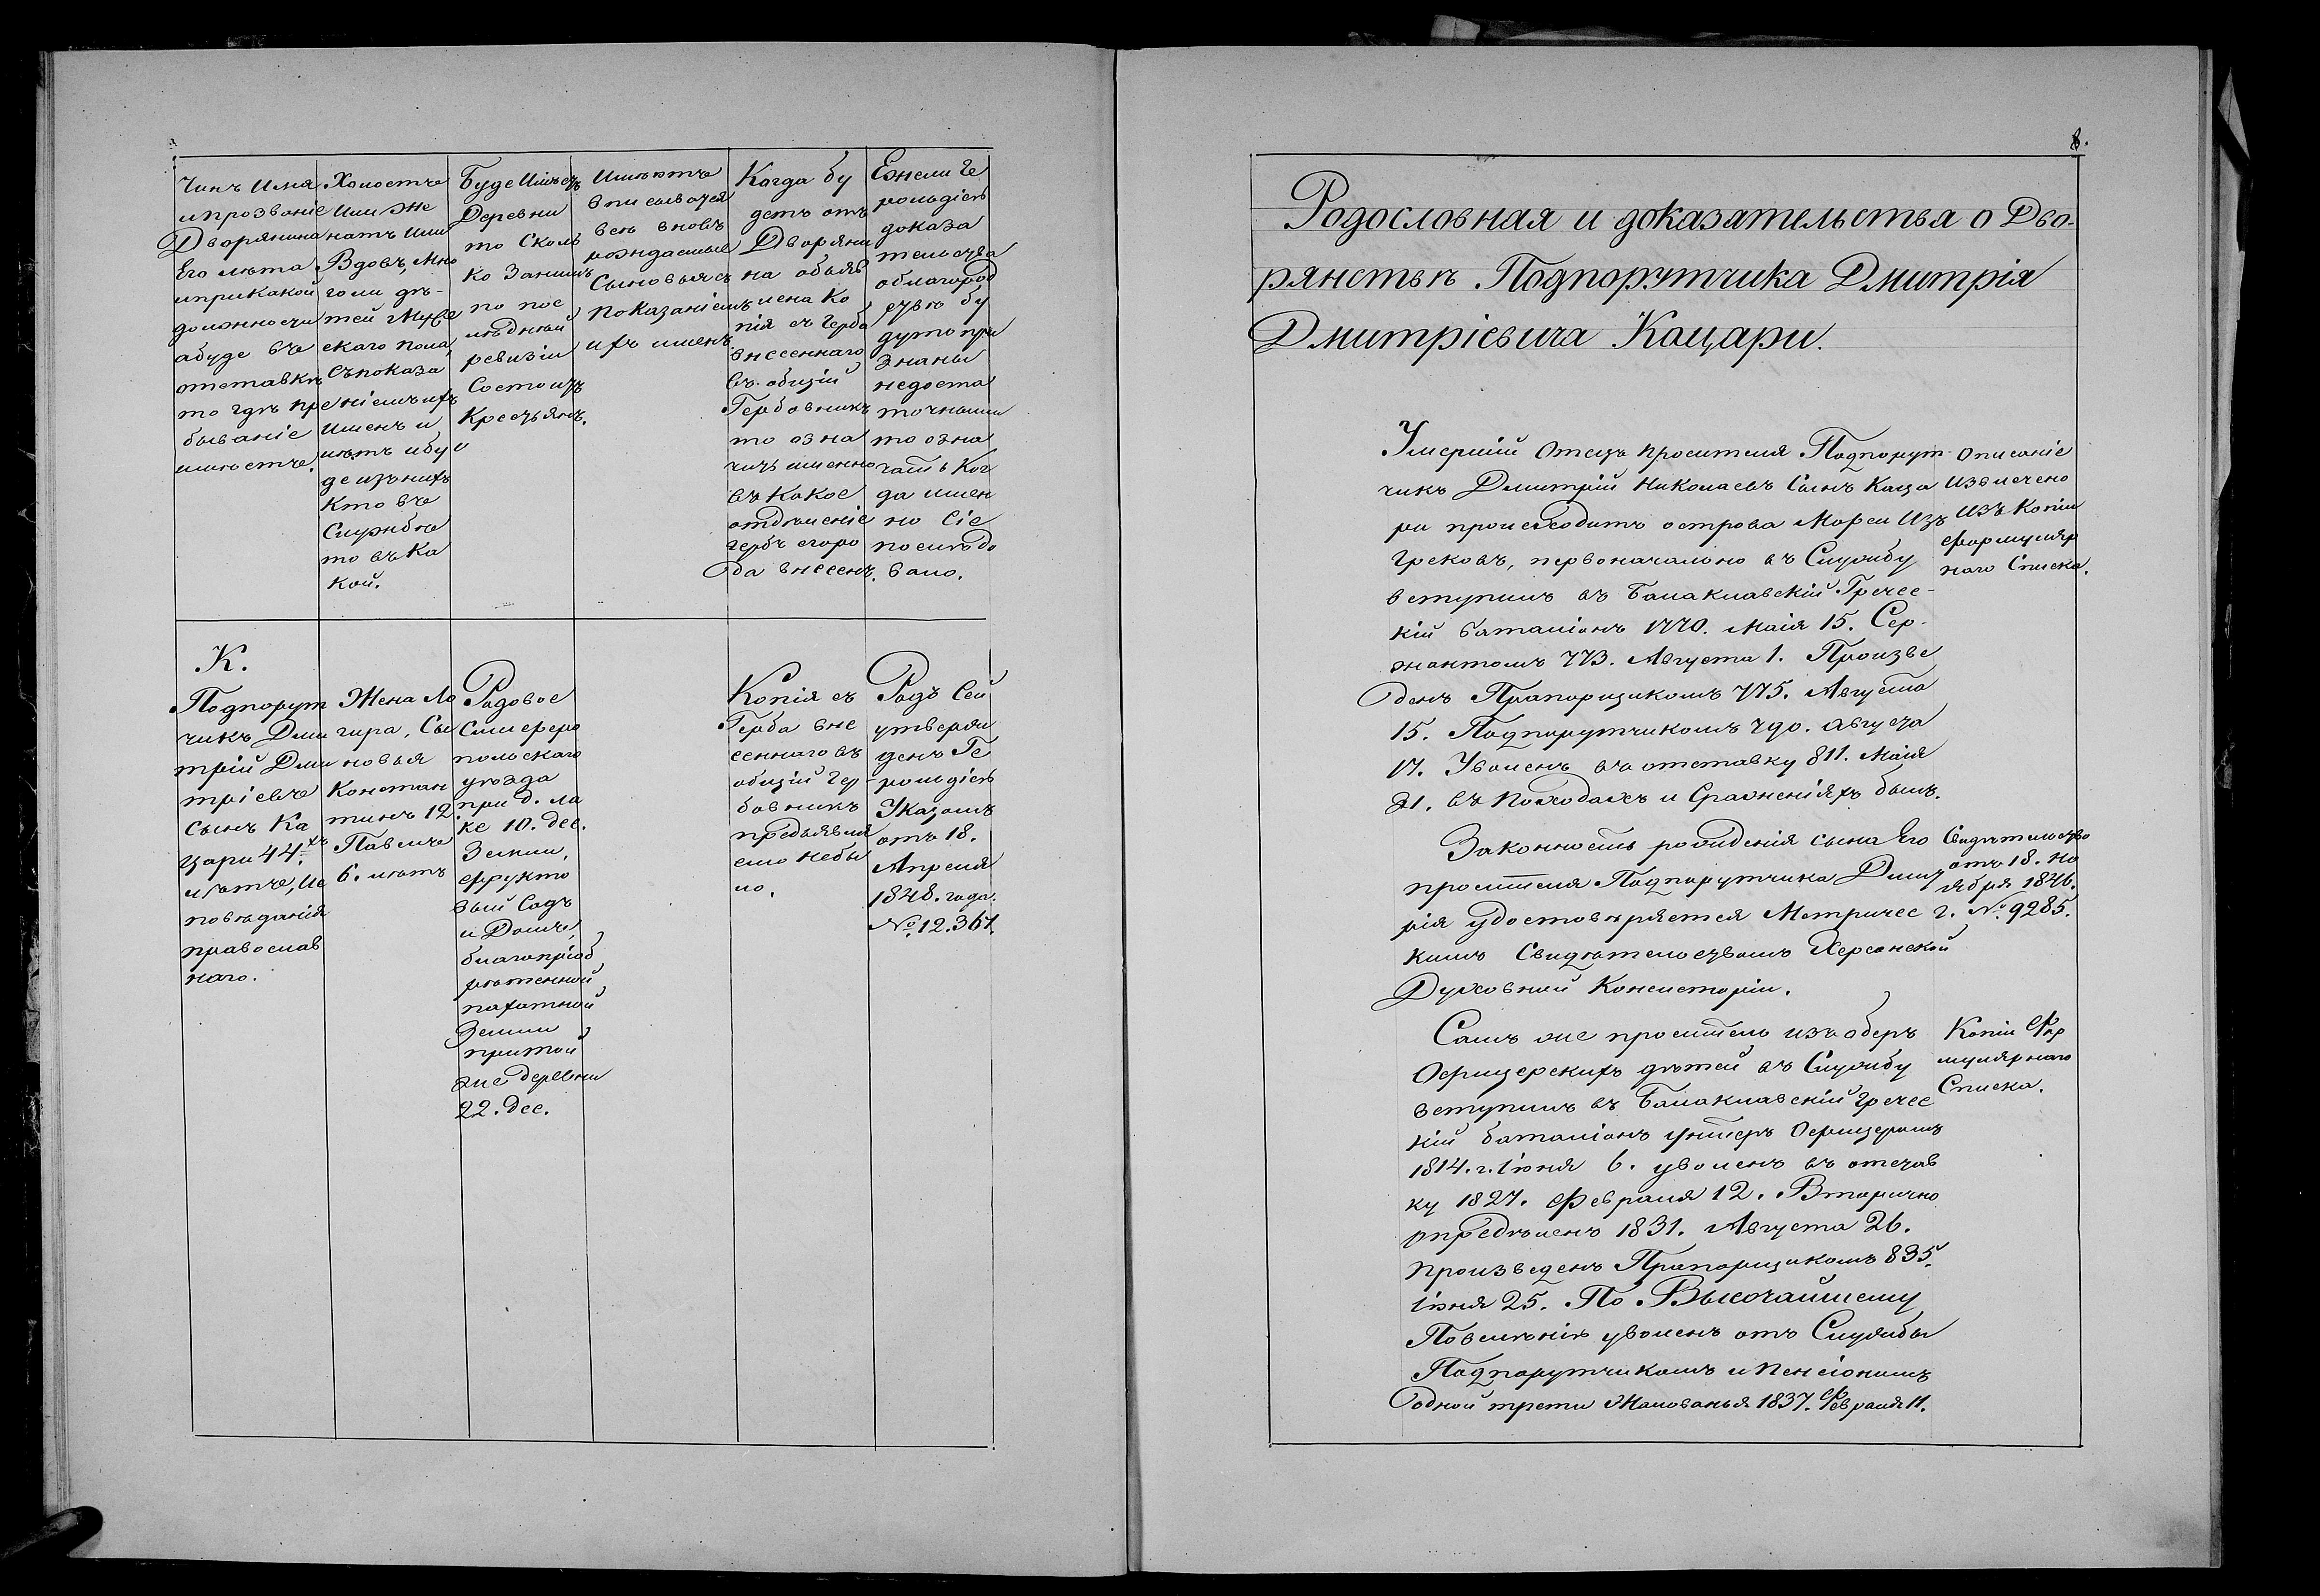 Чинъ Имя
и прозваніе
Дворянина
Его лѣта
и при какой
должности
а буде въ
отставкѣ
то гдѣ пре
бываніе
имѣетъ.
Холостъ
Или же
натъ Или
Вдовъ, Мно
го ли дѣ-
тей Муже
скаго пола,
съ показа
ніемъ ихъ
Именъ и
лѣтъ и бу
де изъ нихъ
Кто въ
Службѣ
то въ Ка
кой.
Буде Имѣетъ
Деревни
то Сколь
ко За нимъ
по пос
лѣдней
ревизіи
Состоитъ
Крестьянъ.
Имѣютъ
вписыватся
всѣ вновь
рождаемые
Сыновья съ
показаніемъ
ихъ именъ.
Когда бу
детъ отъ
Дворяни
на объяв
лена Ко
пія съ Герба
внесеннаго
въ общій
Гербовникъ
то озна
чить именно
въ Какое
отдѣленіе
гербъ его ро
да внесенъ.
Ежели Ге
рольдіею
доказа
тельства
о благород
ствѣ бу
дутъ при
знаны
недоста
точными
то озна
чать Ког
да имен
но Сіе
послѣдо
вало.
К.
Подпорут
чикъ Дми
трій Дми
тріевъ
сынъ Ка
цари 44.хъ
лѣтъ, Ис
повѣданія
православ
наго.
Жена Ло
гира, Сы
новья
Констан
тинъ 12.
Павелъ
6. лѣтъ
Родовое
Симферо
польскаго
уѣзда
при д. Ла
ке 10. дес.
Земли,
фрукто
вый Садъ
и Домъ,
благопріоб
рѣтенной
пахатной
Земли
при той
же деревни
22. дес.
Копія съ
Герба вне
сеннаго въ
общій Гер-
бовникъ
предъявля
емо небы
ло.
Родъ Сей
утверж
денъ Ге
рольдіею
Указомъ
отъ 18.
Апреля
1848. года.
№ 12.361.
8.
Родословная и доказательства о Дво-
рянствѣ Подпорутчика Дмитрія
Дмитріевича Кацари.
Умершій Отецъ просителя Подпорут-
чикъ Дмитрій Николаевъ Сынъ Каца
ри происходитъ острова Мореи Изъ
Грековъ, первоначально въ Службу
вступилъ въ Балаклавскій Гречес-
кій баталіонъ 1770. Маія 15. Сер-
жантомъ 773. Августа 1. Произве
денъ Прапорщикомъ 775. Августа
15. Подпорутчикомъ 790. Августа
17. Уволенъ въ отставку 811. Маія
21. въ Походахъ и Сраженіяхъ былъ.
Описаніе
Извлечено
Изъ Копіи
формуляр
наго Списка.
Законность рожденія сына Его
просителя Подпорутчика Дмит
рія удостовѣряется Метричес
кимъ Свидѣтельствомъ Херсонской
Духовной Консисторіи.
Свидѣтельство
отъ 18. но
ября 1846.
г. № 9285.
Самъ же проситель изъ оберъ
Офицерскихъ дѣтей въ Службу
вступилъ въ Балаклавскій Гречес
кій баталіонъ унтеръ Офицеромъ
1814. г. Іюня 6. уволенъ въ отстав
ку 1827. Февраля 12. Вторично
опредѣленъ 1831. Августа 26.
Произведенъ Прапорщикомъ 835.
Іюня 25. По Высочайшему
Повелѣнію уволенъ отъ Службы
Подпорутчикомъ и Пенсіономъ
одной трети Жалованья 1837. Февраля 11.
Копіи Фор
мулярнаго
Списка.